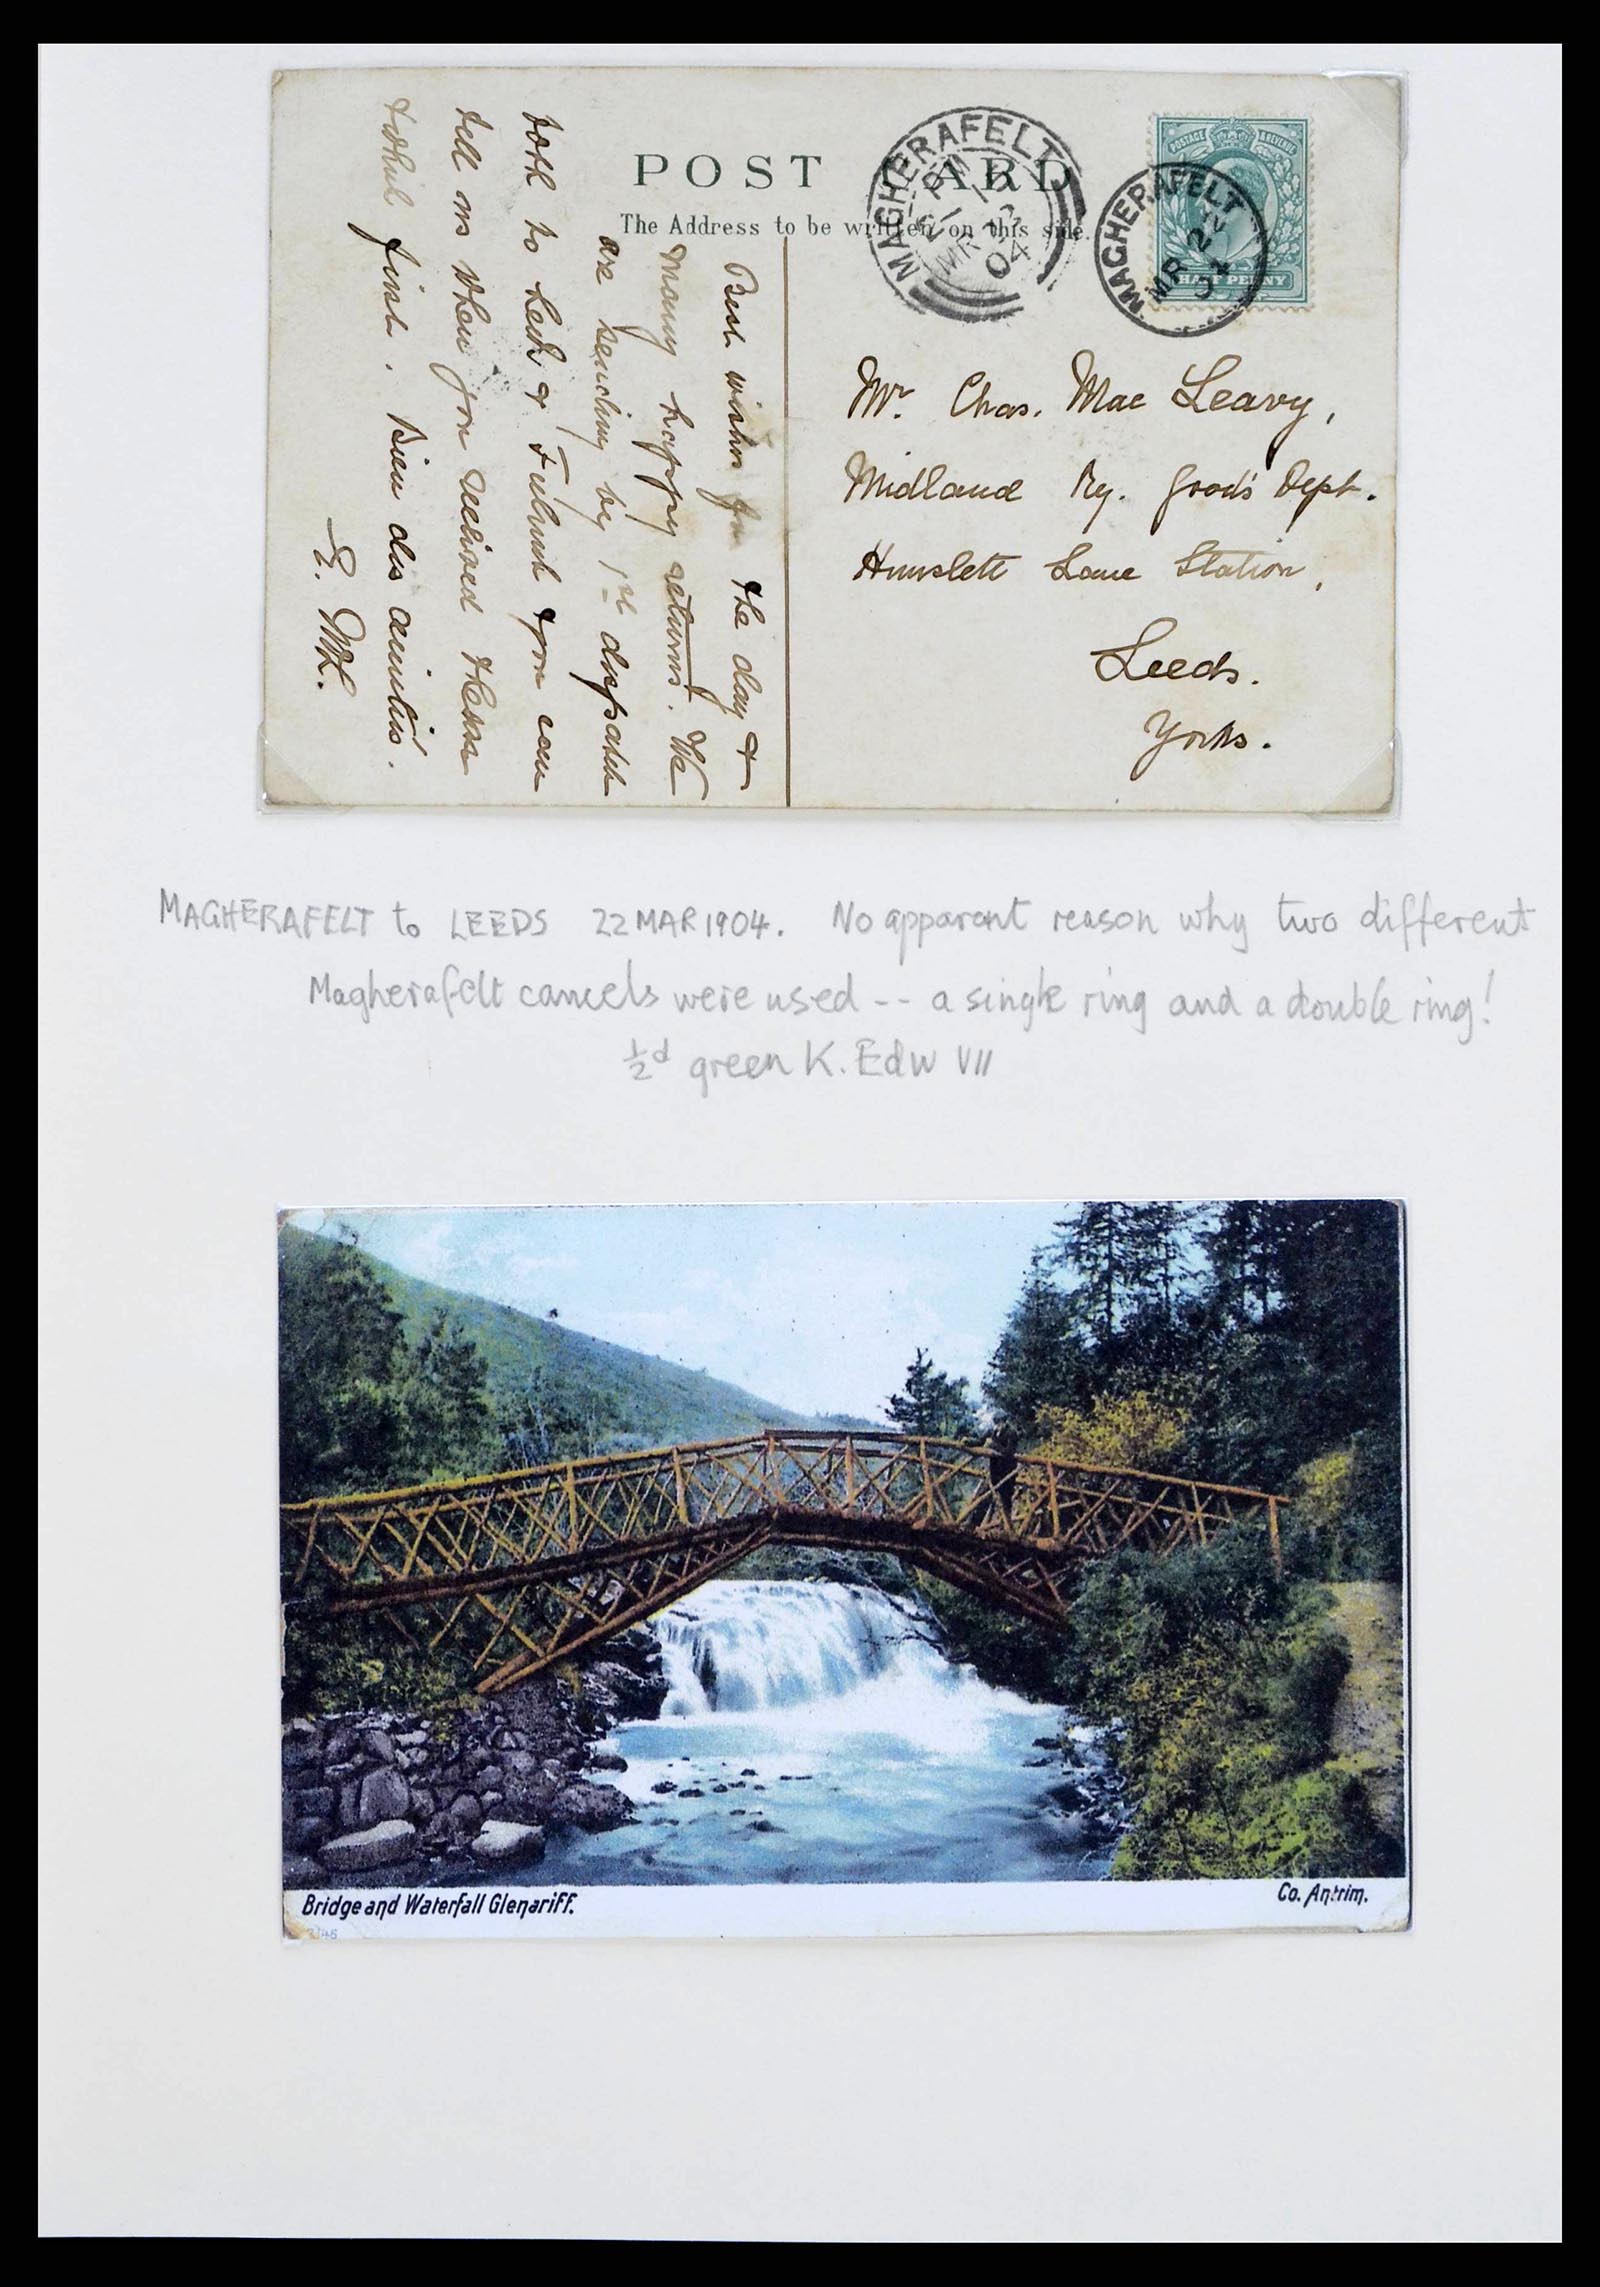 POST CARD
The Address to be written on this side.
MAGHERAFELT
MR 22
04
POSTAGE & REVENUE
HALF PENNY
MAGHERAFELT
MR 22
Mr. Chas. Mac Leavy,
Midland Ry. Goods Dept.
Hunslett Lane Station,
Leeds.
Yorks.
Best wishes for the day &
many happy returns. We
are sending by 1st dispatch
both to Leeds & you can
tell us when you received them
first. Bien des amitiés.
E. ML.
MAGHERAFELT to LEEDS 22 MAR 1904. No apparent reason why two different
Magherafelt cancels were used -- a single ring and a double ring!
½d green K. Edw VII
Bridge and Waterfall Glenariff.
Co. Antrim.